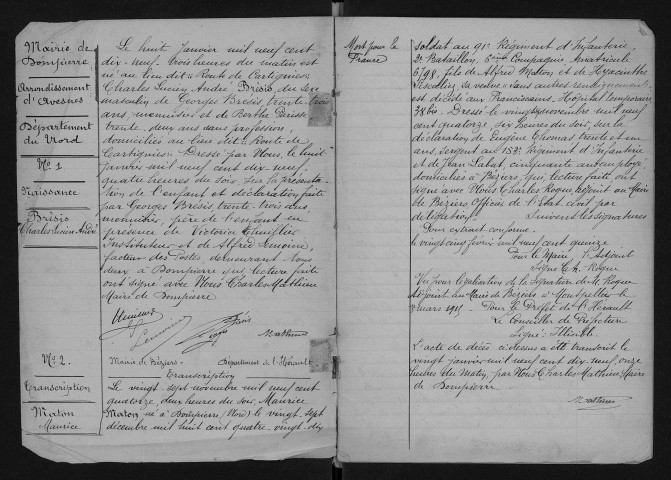 Mairie de
Dompierre
Arrondissement
d'Avesnes
Département
du Nord
No 1
Naissance
Brésis
Charles Lucien André
Le huit Janvier mil neuf cent
dix-neuf, trois heures du matin est
né au lieu dit "Route de Cartignies"
Charles Lucien André Brésis, du sexe
masculin de Georges Brésis trente trois
ans, menuisier et de Berthe
trente deux ans sans profession,
domiciliés au lieu dit Route de
Cartignies. Dressé par Nous, le huit
janvier mil neuf cent dix neuf,
quatre heures du soir, sur la présenta-
tion de l'enfant et déclaration faite
par Georges Brésis trente-trois ans
menuisier, père de l'enfant en
présence de Victorien
Instituteur et de Alfred Lemoine,
facteur des Postes, demeurant tous
deux à Dompierre qui, lecture faite
ont signé avec Nous Charles Mathieu
Maire de Dompierre
Lemoine
Mathieu
No 2.
Transcription
Maton
Maurice
Mairie de Béziers - Département de l'Hérault
Transcription
Le vingt sept novembre mil neuf cent
quatorze, deux heures du soir, Maurice
Maton, né à Dompierre (Nord) le vingt sept
décembre mil huit cent quatre-vingt-dix
Mort pour la
France
soldat au 91e Régiment d'Infanterie,
2e Bataillon, 6eme Compagnie, Matricule
6798, fils de Alfred Maton et de Hyacinthe
sa veuve, sans autres renseignements
est décédé aux Franciscains, Hôpital temporaire
38 bis. Dressé le vingt novembre mil neuf
cent quatorze six heures du soir, sur la
déclaration de Eugène trente et un
ans, sergent au 153e Régiment d'Infanterie
et de Jean Labat, cinquante ans employé,
domiciliés à Béziers qui, lecture faite ont
signé avec Nous Charles Roque adjoint au Maire
de Béziers Officier de l'Etat civil par
délégation. Suivent les signatures
Pour extrait conforme.
le vingt cinq février mil neuf cent quinze
Pour le Maire, l'Adjoint
Signé Ch. Roque
Vu pour légalisation de la Signature de M. Roque
Adjoint au Maire de Béziers à Montpellier le
mars 1915 - Pour le Préfet de l'Hérault
Le Conseiller de Préfecture
Signé: Illisible
L'acte de décès ci-dessus a été transcrit le
vingt janvier mil neuf cent dix neuf, onze
heures du matin, par Nous Charles Mathieu, Maire
de Dompierre.
Mathieu